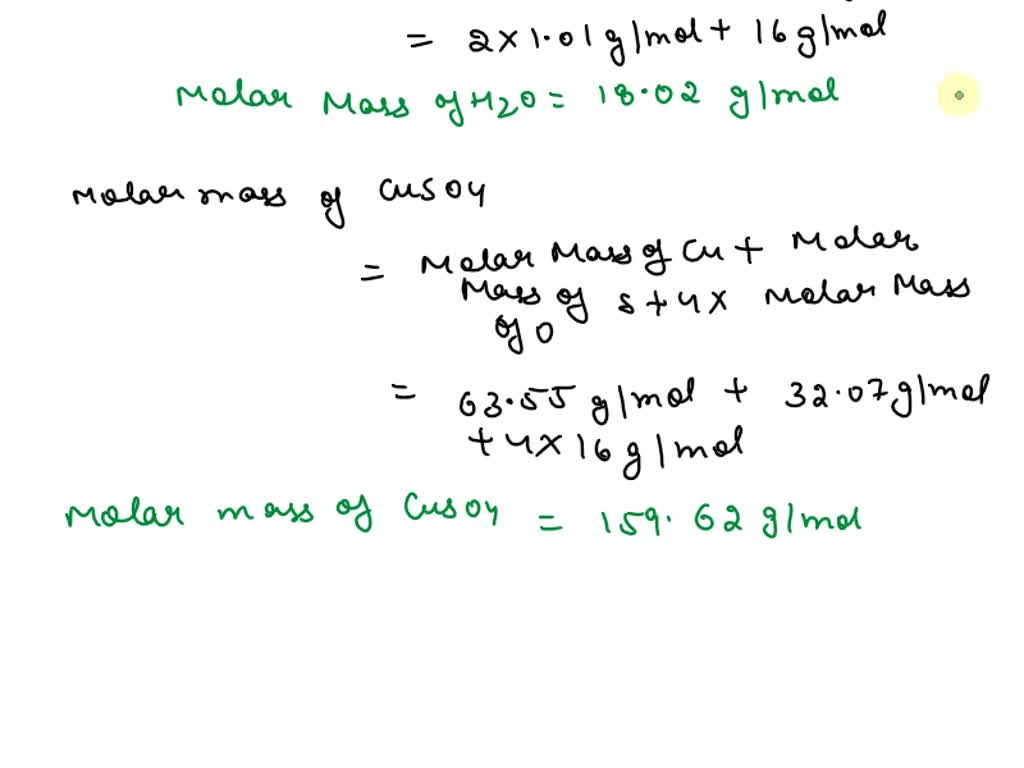 = 2 × 1.01 g/mol + 16 g/mol
Molar Mass of H2O = 18.02 g/mol
Molar mass of CuSO4
= Molar Mass of Cu + Molar
Mass of S + 4 × Molar Mass
of O
= 63.55 g/mol + 32.07 g/mol
+ 4 × 16 g/mol
Molar mass of CuSO4 = 159.62 g/mol